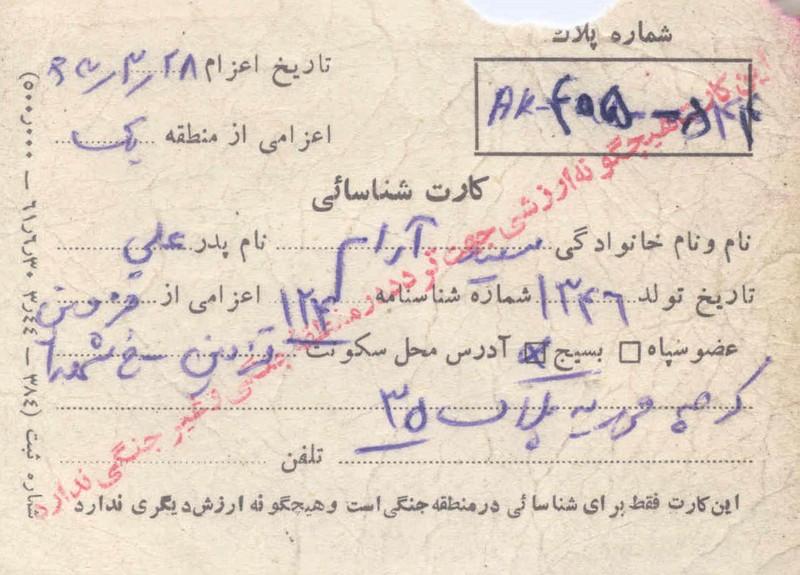 شماره پلاک
تاریخ اعزام ۶۲/۳/۲۸
AK-۴۰۵-۵۴۴
اعزامی از منطقه یک
کارت شناسائی
نام و نام خانوادگی سعید آرام نام پدر علی
تاریخ تولد ۱۳۴۶ شماره شناسنامه ۱۲۳ اعزامی از قزوین
عضو سپاه □ بسیج ☒ آدرس محل سکونت قزوین
کوچه مهریه پلاک ۳۵
تلفن
این کارت فقط برای شناسائی در منطقه جنگی است و هیچگونه ارزش دیگری ندارد
این کارت هیچگونه ارزشی جهت تردد در منطقه جنگی و غیر جنگی ندارد
شماره ثبت (۳۸۴ – ۳۰۴۴ ۶۱/۶/۳۰ – ۵۰۰٫۰۰۰)